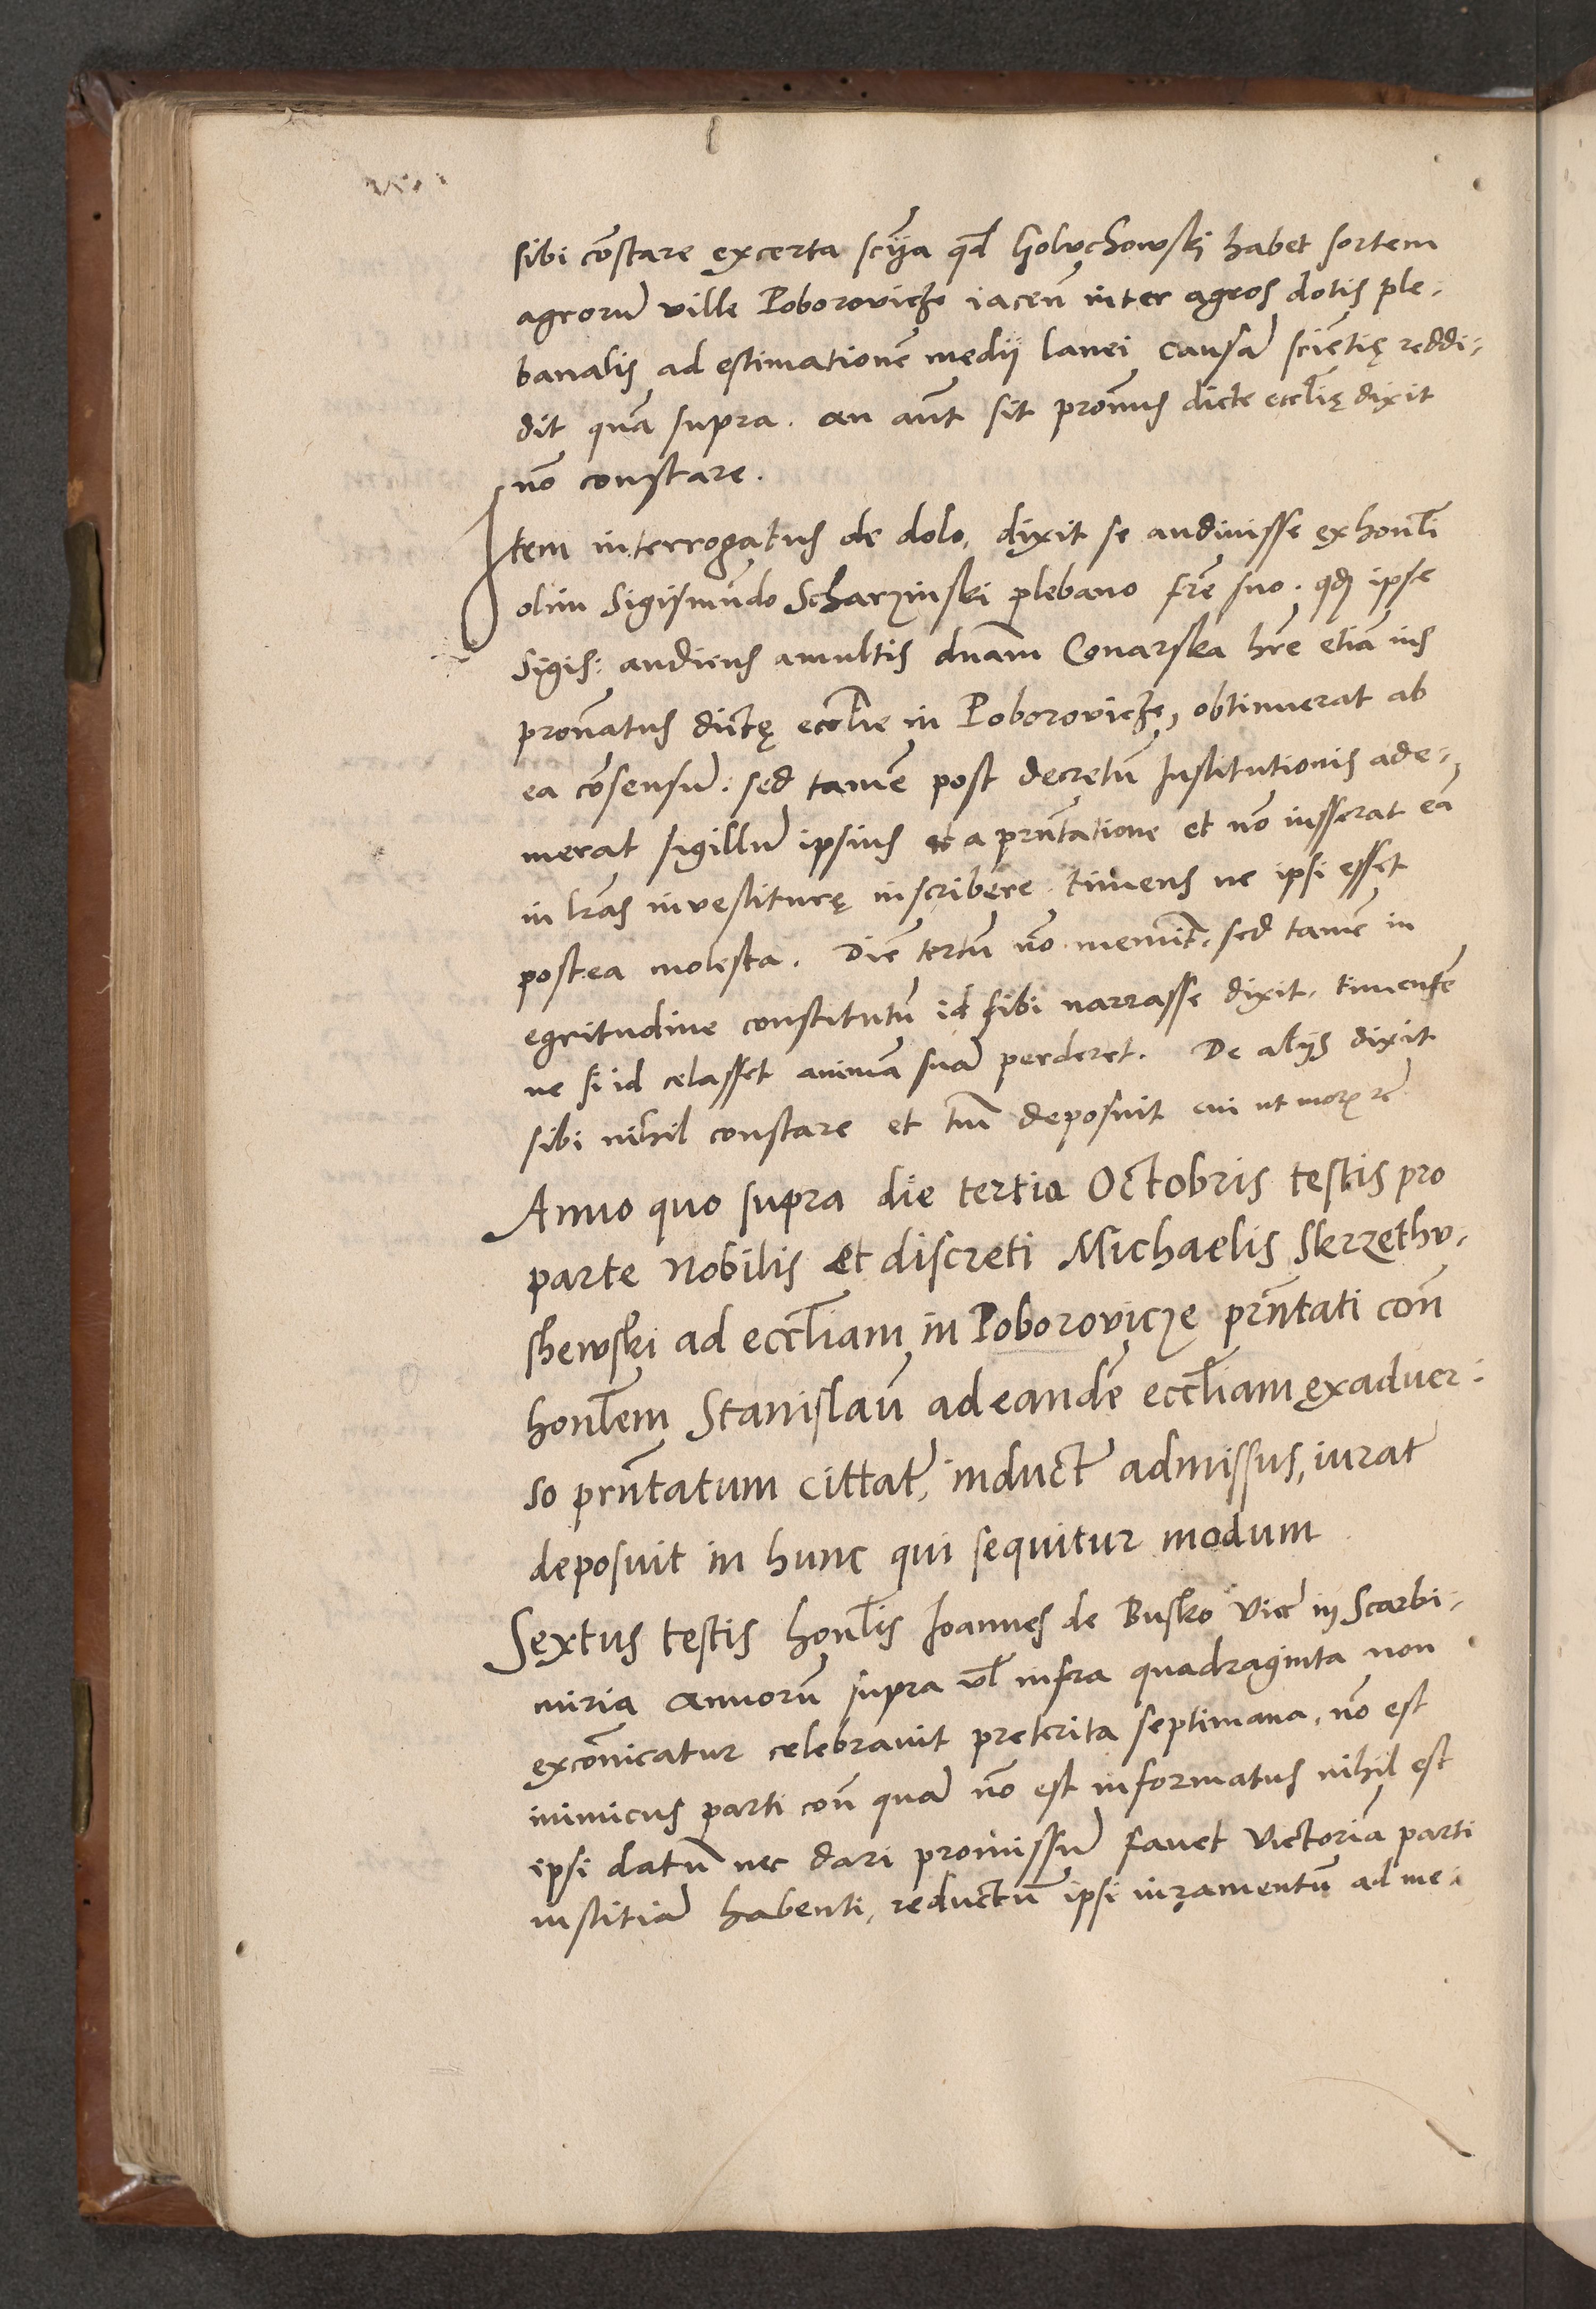 sibi cōstare ex certa sciӯa qđ Goluchowski habet sortem
agrorū ville Poborovicze iaceñ inter agros dotis ple-
banalis ad estimationē medij lanei causā sciētię reddi-
dit quā supra. an aūt sit proñus dicte eccľię dixit
nō constare.
Item interrogatus de dolo, dixit se audivisse ex honľi
olim Sigismūdo Scharzinski plebano frē suo. qđ ipse
Sigis: audiens a multis dnam Conarska hrē etiā ius
proñatus dictę eccľie in Poborovicze, obtinuerat ab
ea cōsensū: sed tamē post decretū Institutionis ade-
merat sigillū ipsius et a prñtatione et nō iusserat eā
in lrās investiturę inscribere timens ne ipsi esset
postea molesta. Diē certū nō meminit. sed tamē in
egritudine constitutū id sibi narrasse dixit, timentē
ne si id celasset animā suā perderet. De alijs dixit
sibi nihil constare et tm̄ deposuit cui ut moris rē
Anno quo supra die tertia Octobris testis pro
parte Nobilis et discreti Michaelis Skrzethu-
shewski ad eccľiam in Poborovicze prñtati coñ
honľem Stanislaū ad eandē eccľiam ex adver-
so prñtatum cittat̄, induct̄ admissus, iurat̄
deposuit in hunc qui sequitur modum
Sextus testis honľis Ioannes de Busko Vicē in Scarbi-
miria annorū supra vľ infra quadraginta non
excōnicatur celebravit preterita septimana, nō est
inimicus parti coñ quā nō est informatus nihil est
ipsi datū nec dari promissū favet victoria parti
iustitiā habenti, reductū ipsi iuramentū ad me-